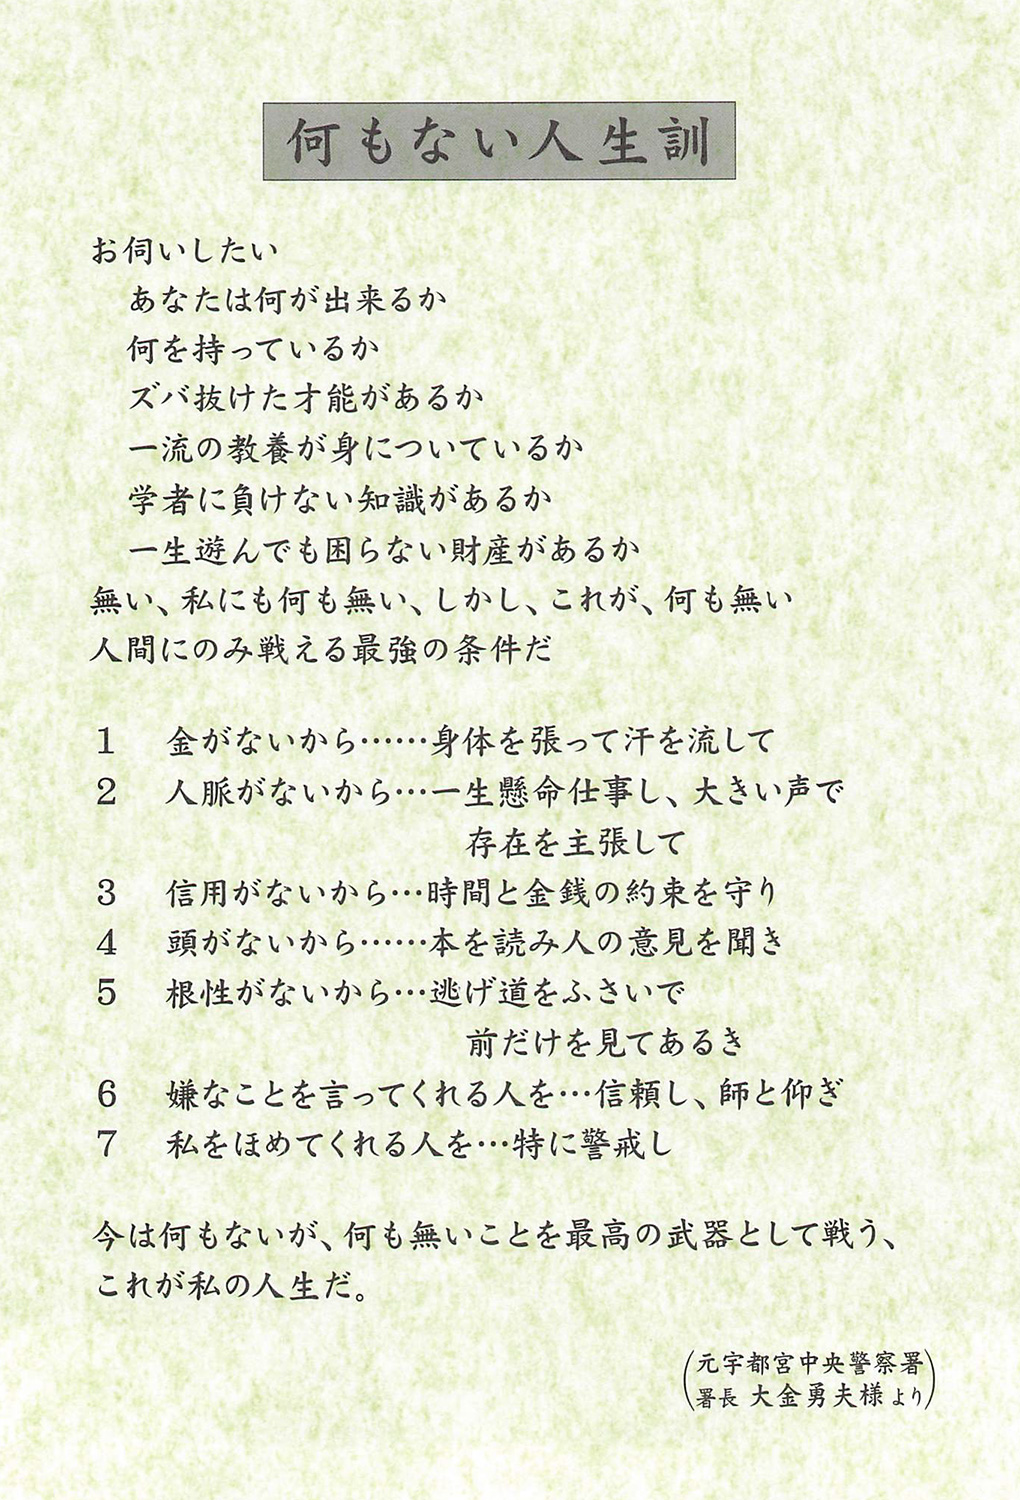 何もない人生訓
お伺いしたい
あなたは何が出来るか
何を持っているか
ズバ抜けた才能があるか
一流の教養が身についているか
学者に負けない知識があるか
一生遊んでも困らない財産があるか
無い、私にも何も無い、しかし、これが、何も無い
人間にのみ戦える最強の条件だ
1 金がないから……身体を張って汗を流して
2 人脈がないから…一生懸命仕事し、大きい声で
存在を主張して
3 信用がないから…時間と金銭の約束を守り
4 頭がないから……本を読み人の意見を聞き
5 根性がないから…逃げ道をふさいで
前だけを見てあるき
6 嫌なことを言ってくれる人を…信頼し、師と仰ぎ
7 私をほめてくれる人を…特に警戒し
今は何もないが、何も無いことを最高の武器として戦う、
これが私の人生だ。
(元宇都宮中央警察署
署長 大金勇夫様より)